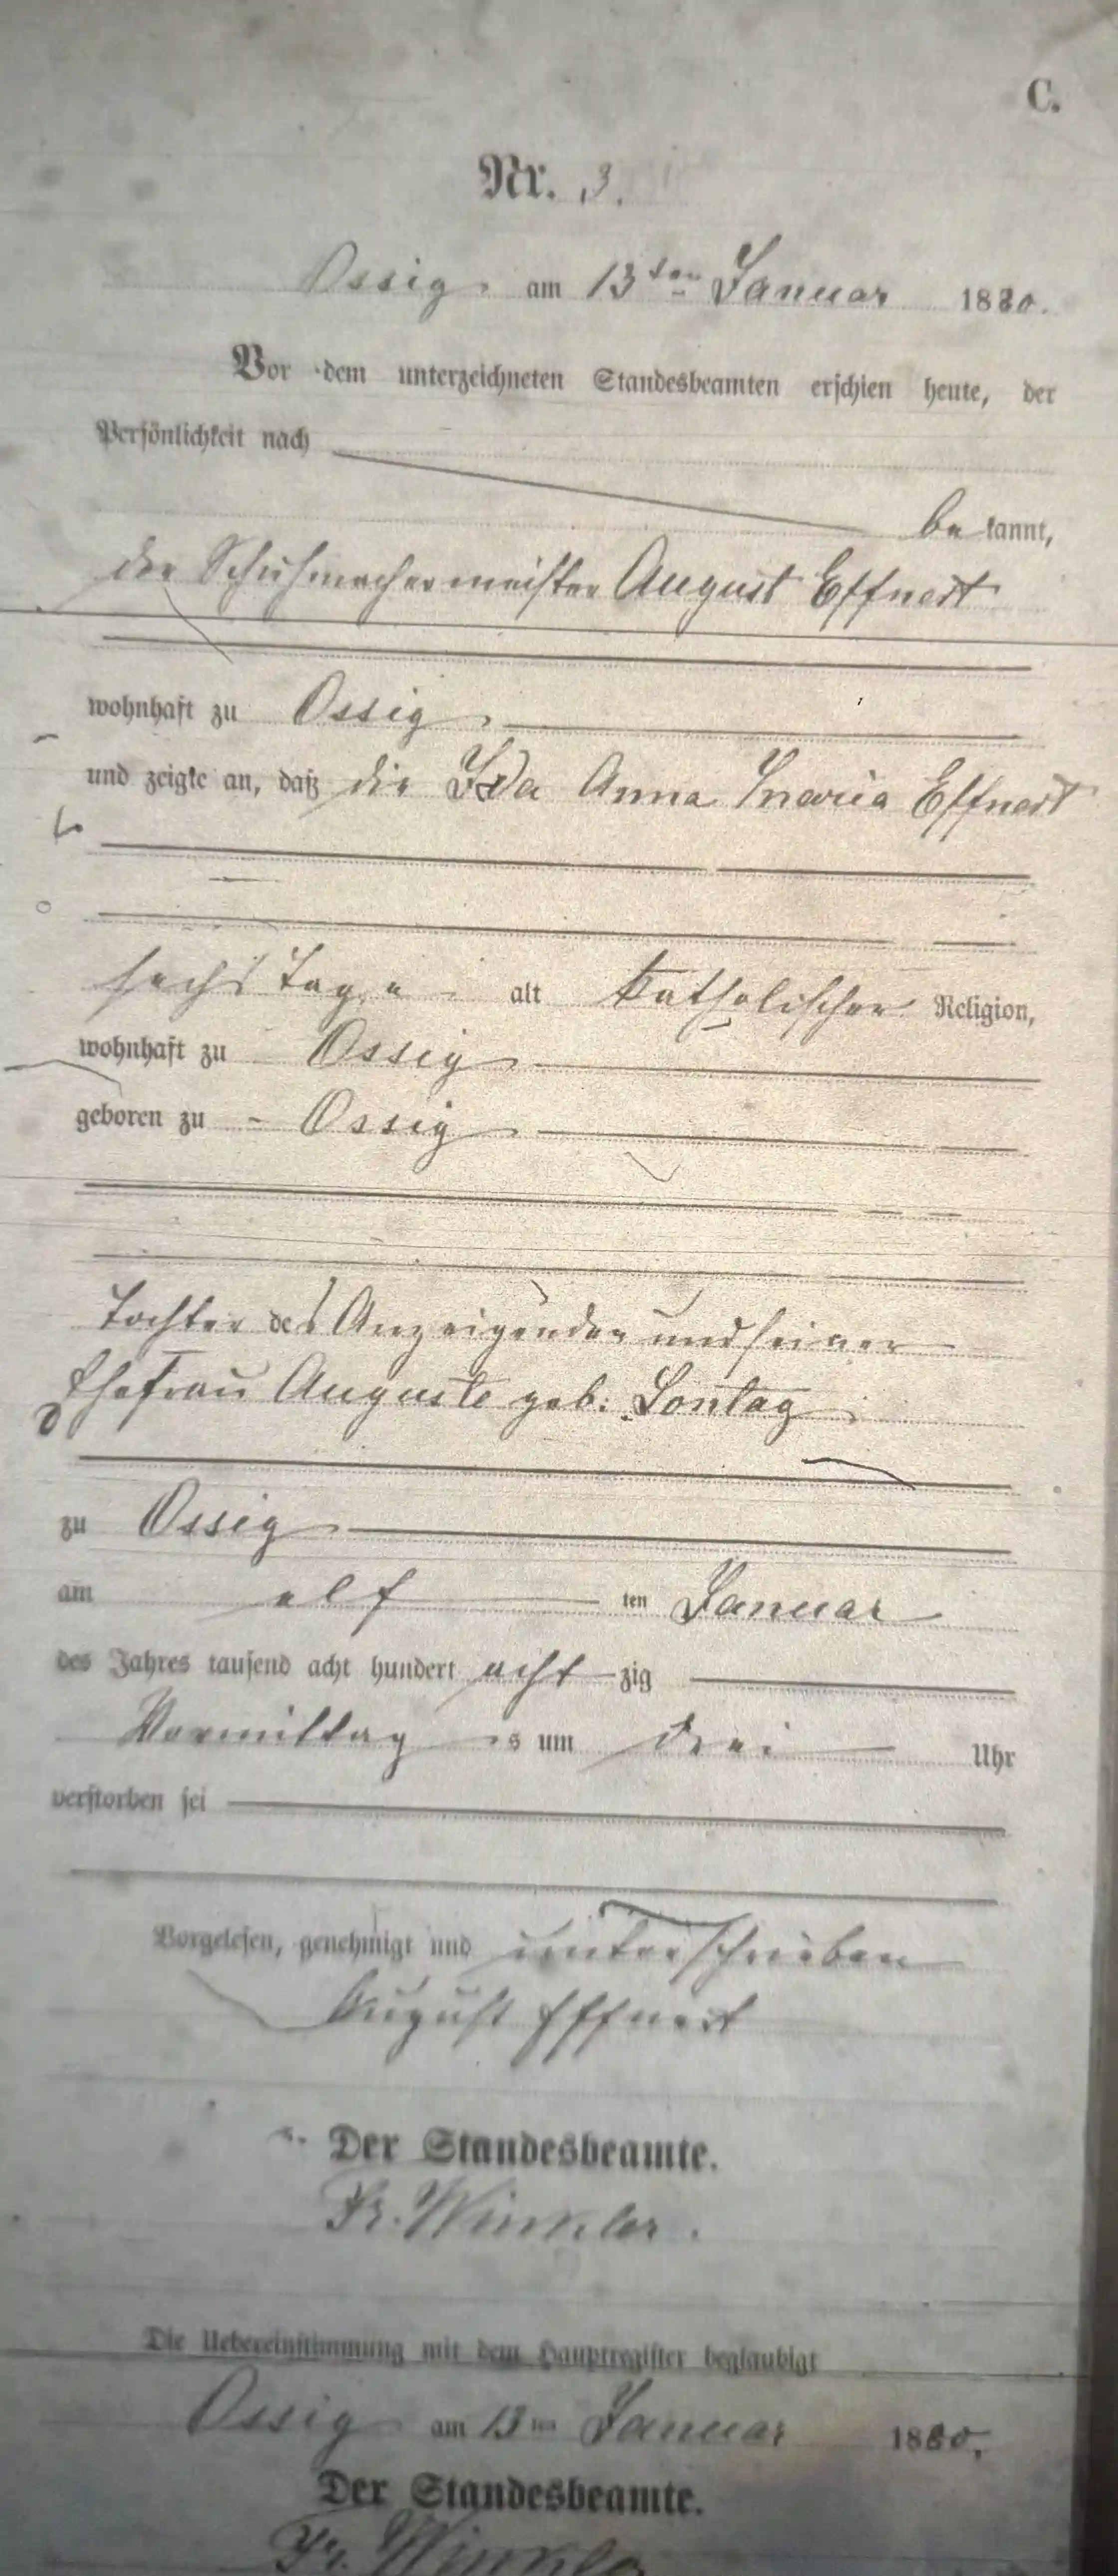 C.
Nr. 3.
Ossig, am 13ten Januar 1880.
Vor dem unterzeichneten Standesbeamten erschien heute, der
Persönlichkeit nach
be kannt,
der Schuhmachermeister August Effnert
wohnhaft zu Ossig,
und zeigte an, daß die Ida Anna Maria Effnert
sechs Tage alt katholischer Religion,
wohnhaft zu Ossig
geboren zu Ossig
Tochter des Anzeigenden und seiner
Ehefrau Auguste geb: Sontag
zu Ossig
am elf ten Januar
des Jahres tausend acht hundert acht zig
Vormittag s um drei Uhr
verstorben sei
Vorgelesen, genehmigt und unterschrieben
August Effnert
Der Standesbeamte.
Fr. Winkler.
Die Uebereinstimmung mit dem Hauptregister beglaubigt
Ossig am 13ten Januar 1880.
Der Standesbeamte.
Fr. Winkler